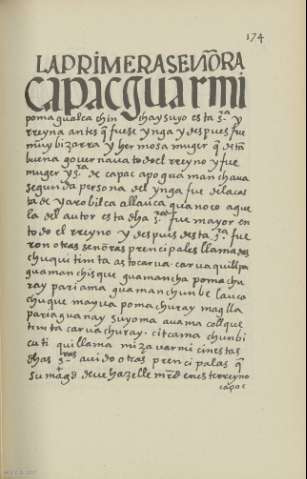 174
LAPRIMERASEÑORA
CapacGuarmi
poma gualca chin chaysuyo esta sa y
rreyna antes q fuese ynga y despues fue
muy bizarra y hermosa muger q
buena gouernaua todo el rreyno y fue
muger y sa de capac apo guaman chaua
segunda persona del ynga fue de la cas
ta de yarobilca allauca guanoco ague
la del autor esta dha sa fue mayor en
todo el rreyno y despues desta sa fue
ron otras señoras prencipales llamados
chuqui tinta as to carua carua quillpa
guaman chisque guamancha poma chu
ray pariama guaman chunbe lauca
chuque mayua poma churay maglla
paria guanay suyoma auama collque
tinta carua churay citcama chunbi
cuti quillama miza uarmi cinestas
dhas sras auido otras prencipalas q
su magd deue hazelle md en este rreyno